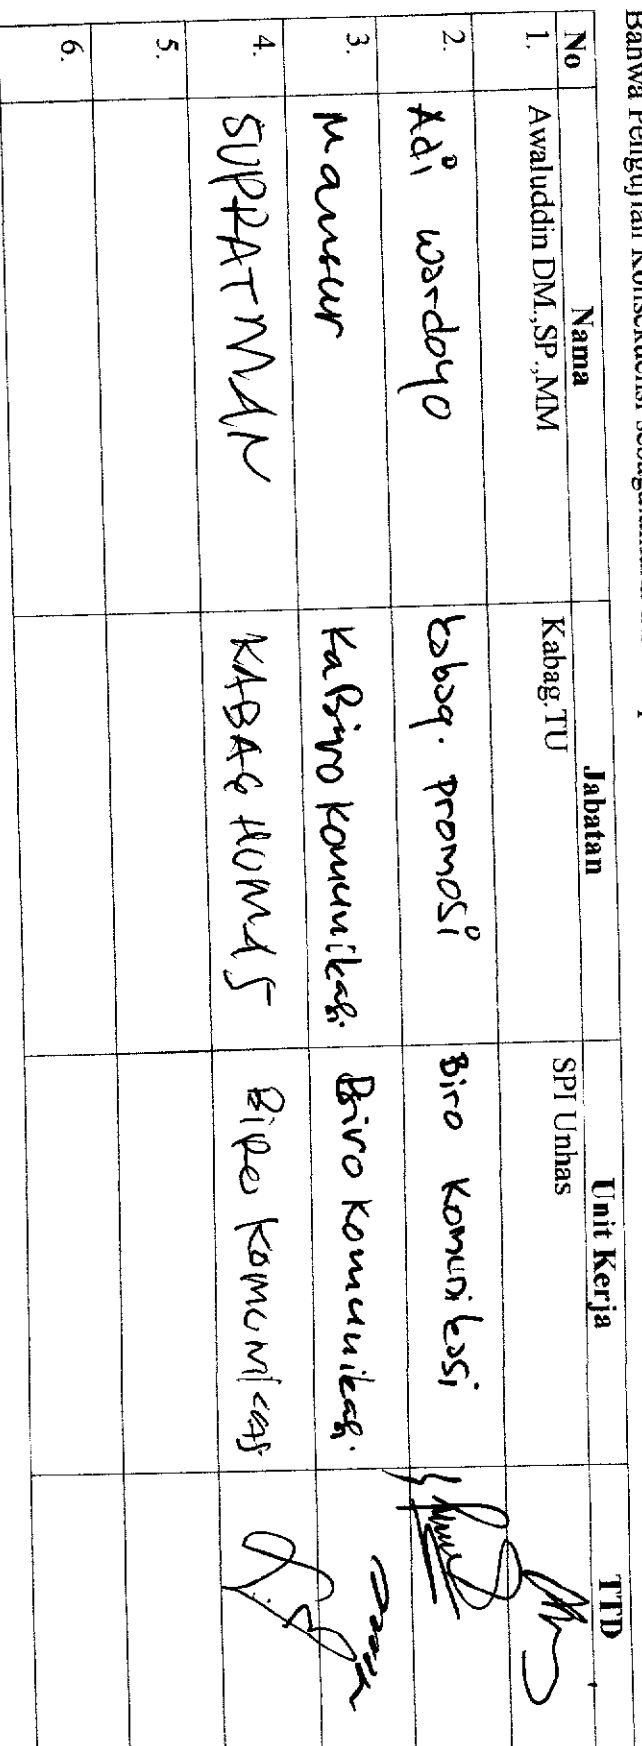 Bahwa Pengujian Konsekuensi sebagaimana
No Nama Jabatan Unit Kerja TTD
1. Awaluddin DM.,SP.,MM Kabag.TU SPI Unhas
2. Adi Wardoyo Kabag. Promosi Biro Komunikasi
3. Mansur Ka Biro Komunikasi Biro Komunikasi
4. SUPRATMAN KABAG HUMAS Biro Komunikasi
5.
6.